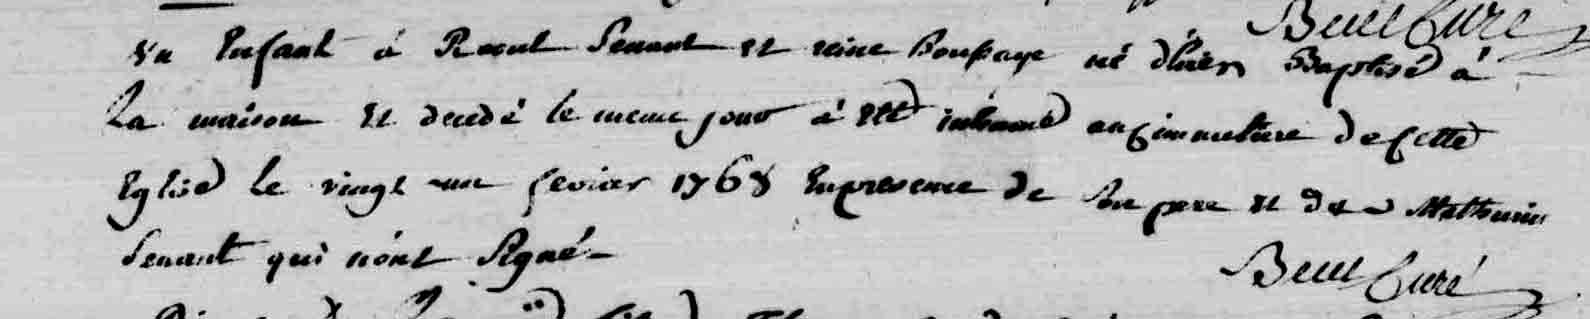 Curé
un Enfant à Raoul Senant et reine né d'hier Baptisé à
La maison et decedé le meme jour à eté inhumé au cimmetiere de cette
Eglise le vingt un fevrier 1768 En presence de son pere et de Mathurin
Senant qui n'ont Signé
Curé